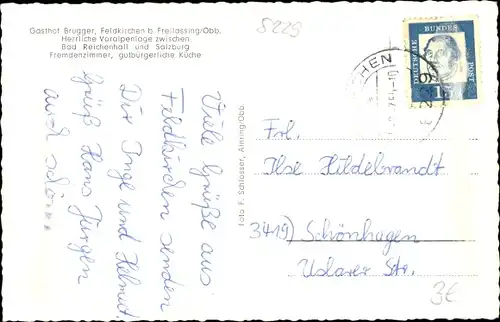 Gasthof Brugger, Feldkirchen b. Freilassing/Obb.
Herrliche Voralpenlage zwischen
Bad Reichenhall und Salzburg
Fremdenzimmer, gutbürgerliche Küche
5229
DEUTSCHE BUNDES POST
Viele Grüße aus
Feldkirchen senden
Dir Inge und Helmut
Grüß Hans Jürgen
auch schön
Foto F. Schlosser, Ainring/Obb.
Frl.
Ilse Hildebrandt
3419) Schönhagen
Uslarer Str.
3€